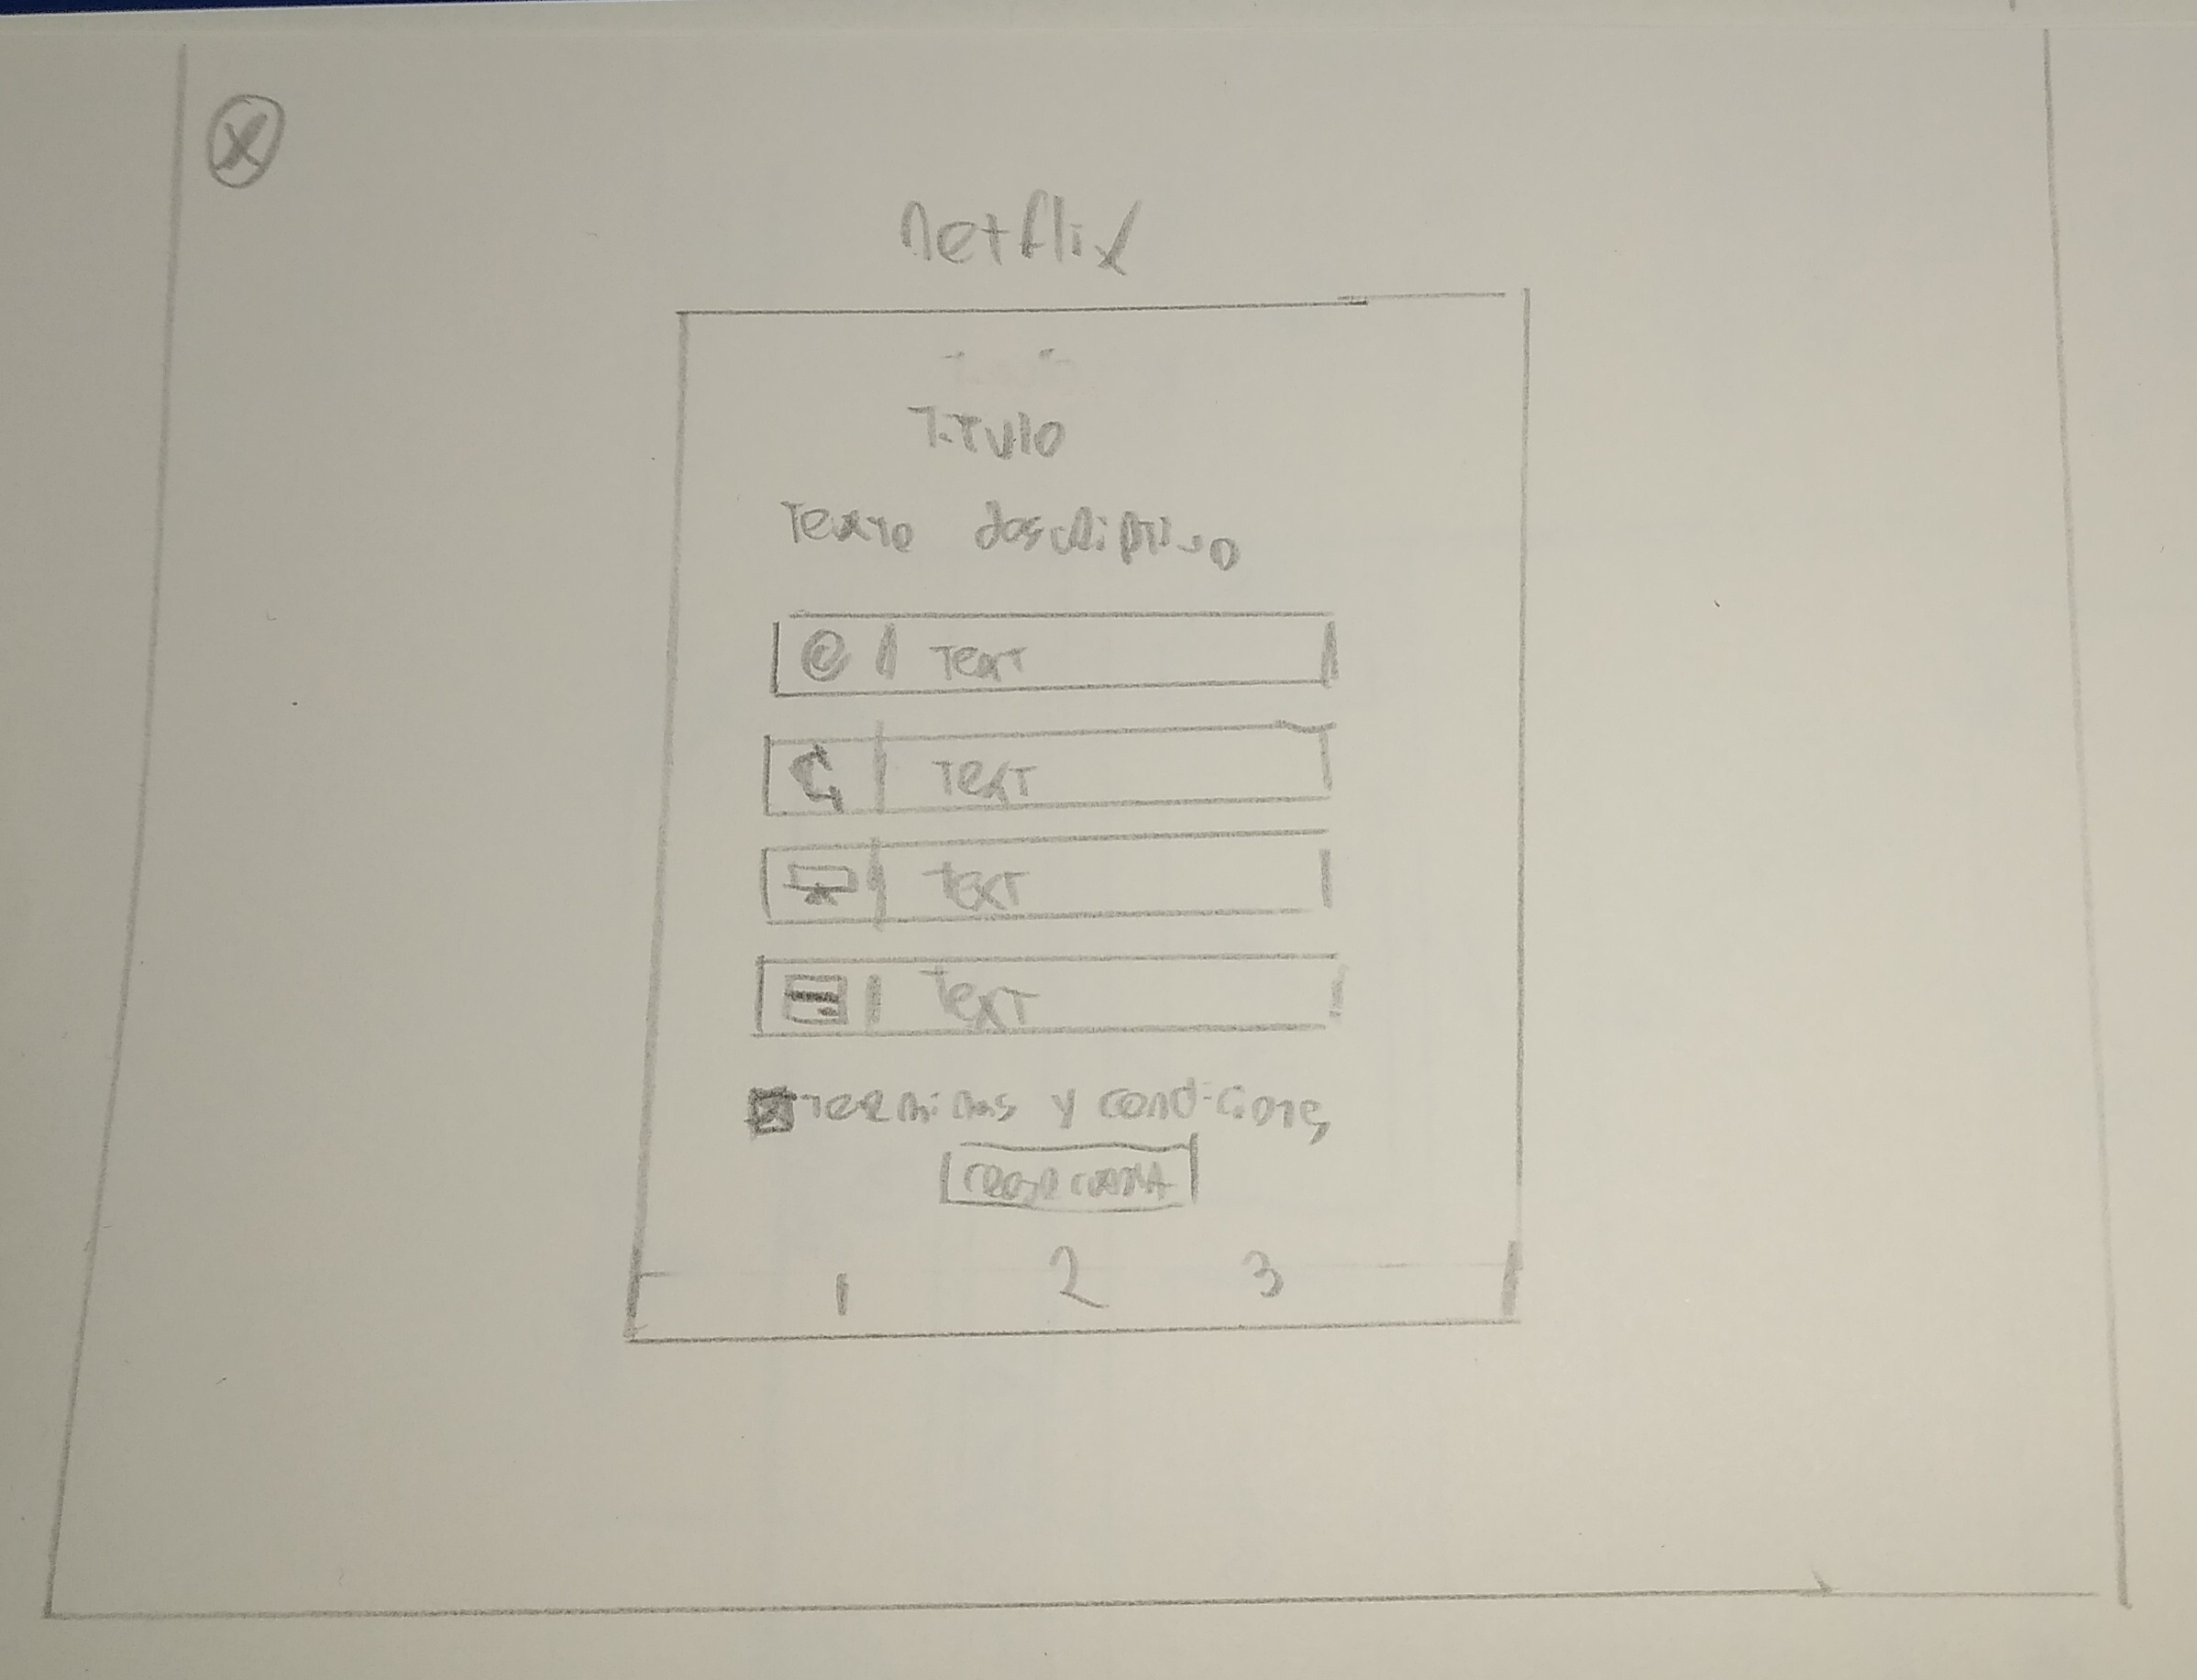 X
netflix
Titulo
Texto descriptivo
@ Text
Text
Text
Text
Terminos y condiciones
crear cuenta
1 2 3